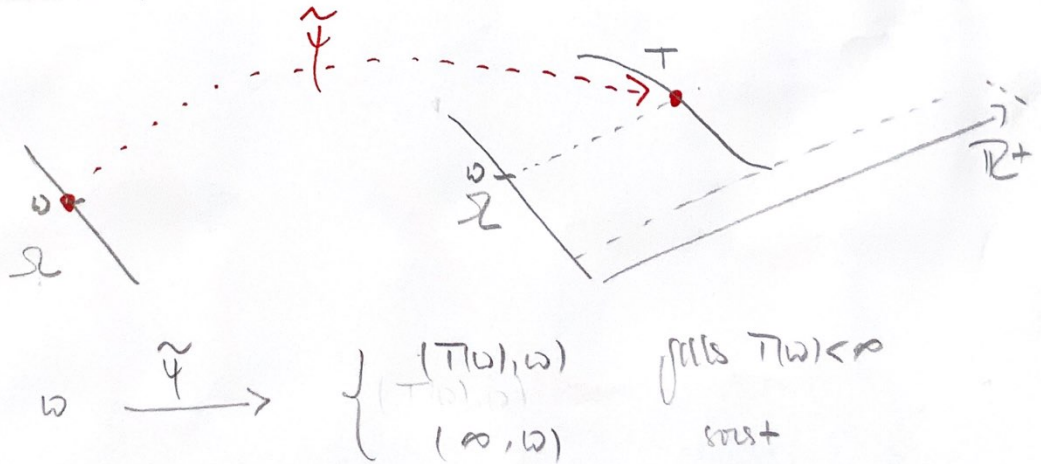 ψ̃
T
ω
Ω
ω
Ω
ℝ+
ω ψ̃ → { (T(ω), ω) falls T(ω) < ∞
(∞, ω) sonst